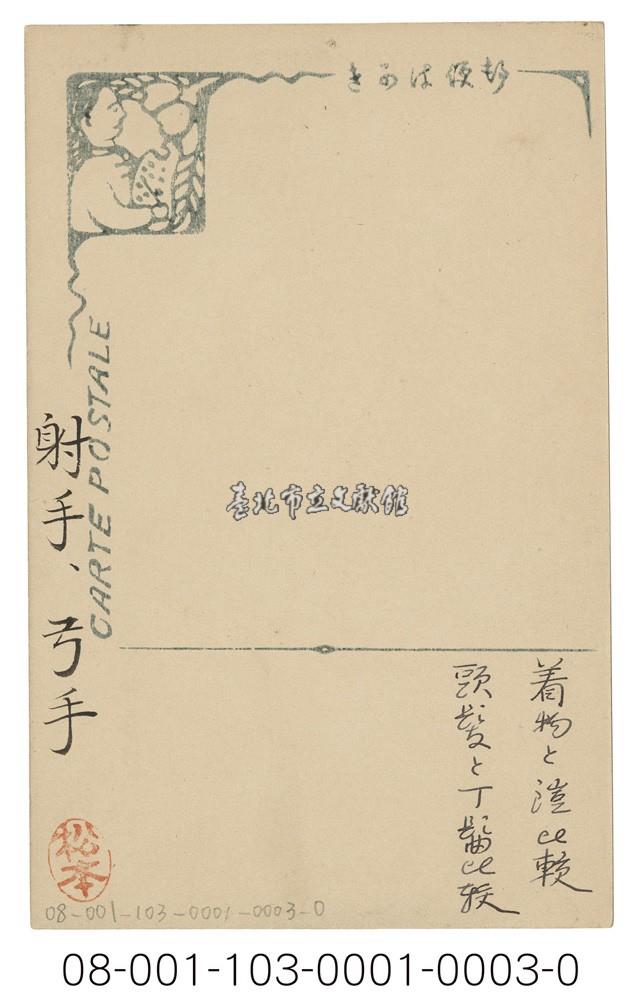 郵便はかき
CARTE POSTALE
臺北市立文獻館
着物と鎧比較
頭髪と丁髷比較
射手、弓手
松本
08-001-103-0001-0003-0
08-001-103-0001-0003-0